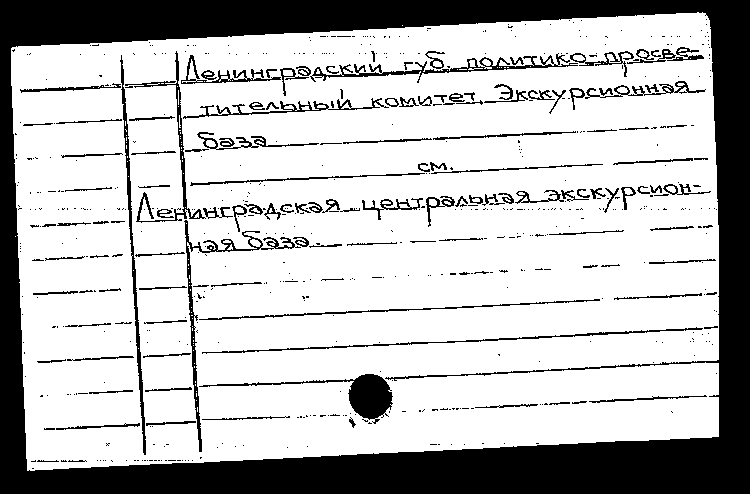 Ленинградский губ. политико-просве-
тительный комитет. Экскурсионная
база
см.
Ленинградская центральная экскурсион-
ная база.